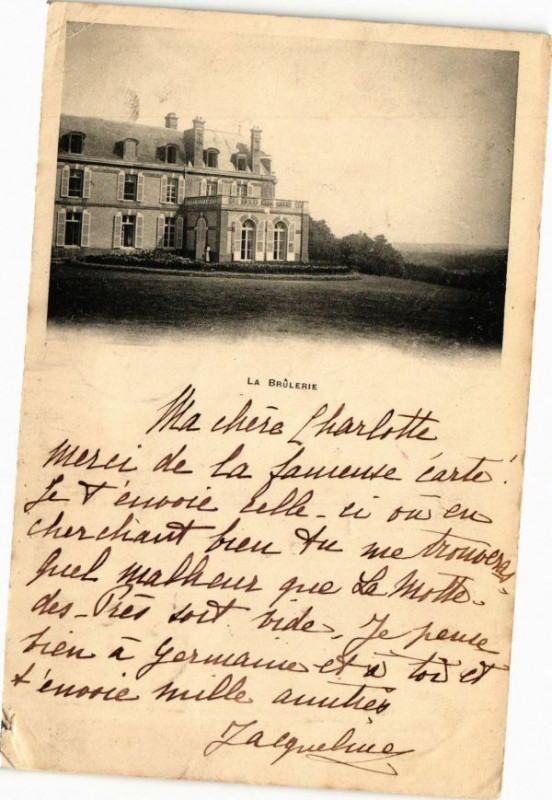 LA BRÛLERIE
Ma chère Charlotte
merci de la fameuse carte!
Je t'envoie celle-ci où en
cherchant bien tu me trouveras.
quel malheur que La Motte-
des-Prés soit vide. Je pense
bien à Germaine et à toi et
t'envoie mille amitiés
Jacqueline